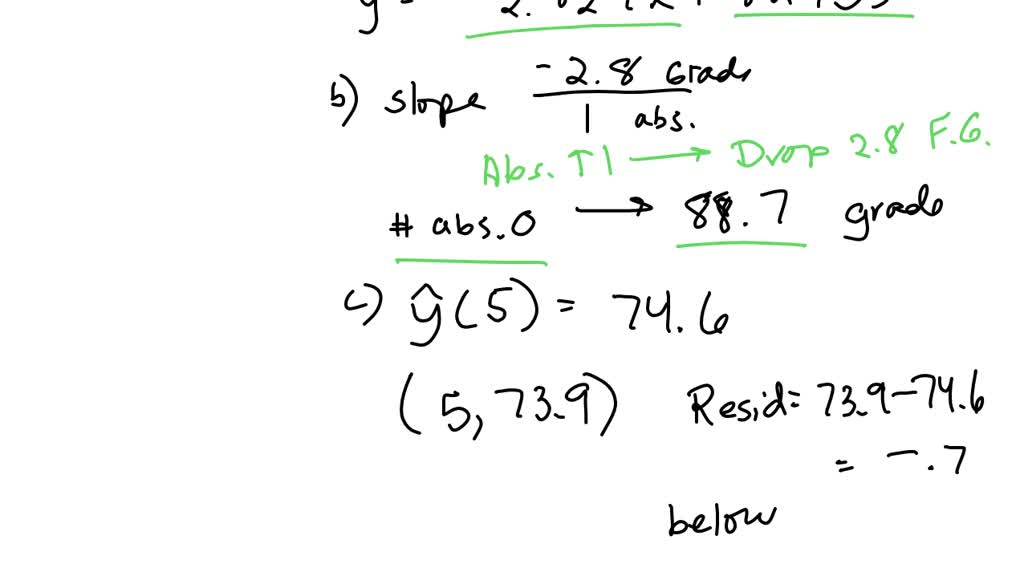 b) slope -2.8 Grade
1 abs.
Abs. ↑ 1 → Drop 2.8 F.G.
# abs. 0 → 88.7 grade
c) ŷ(5) = 74.6
(5, 73.9) Resid = 73.9 - 74.6
= -.7
below